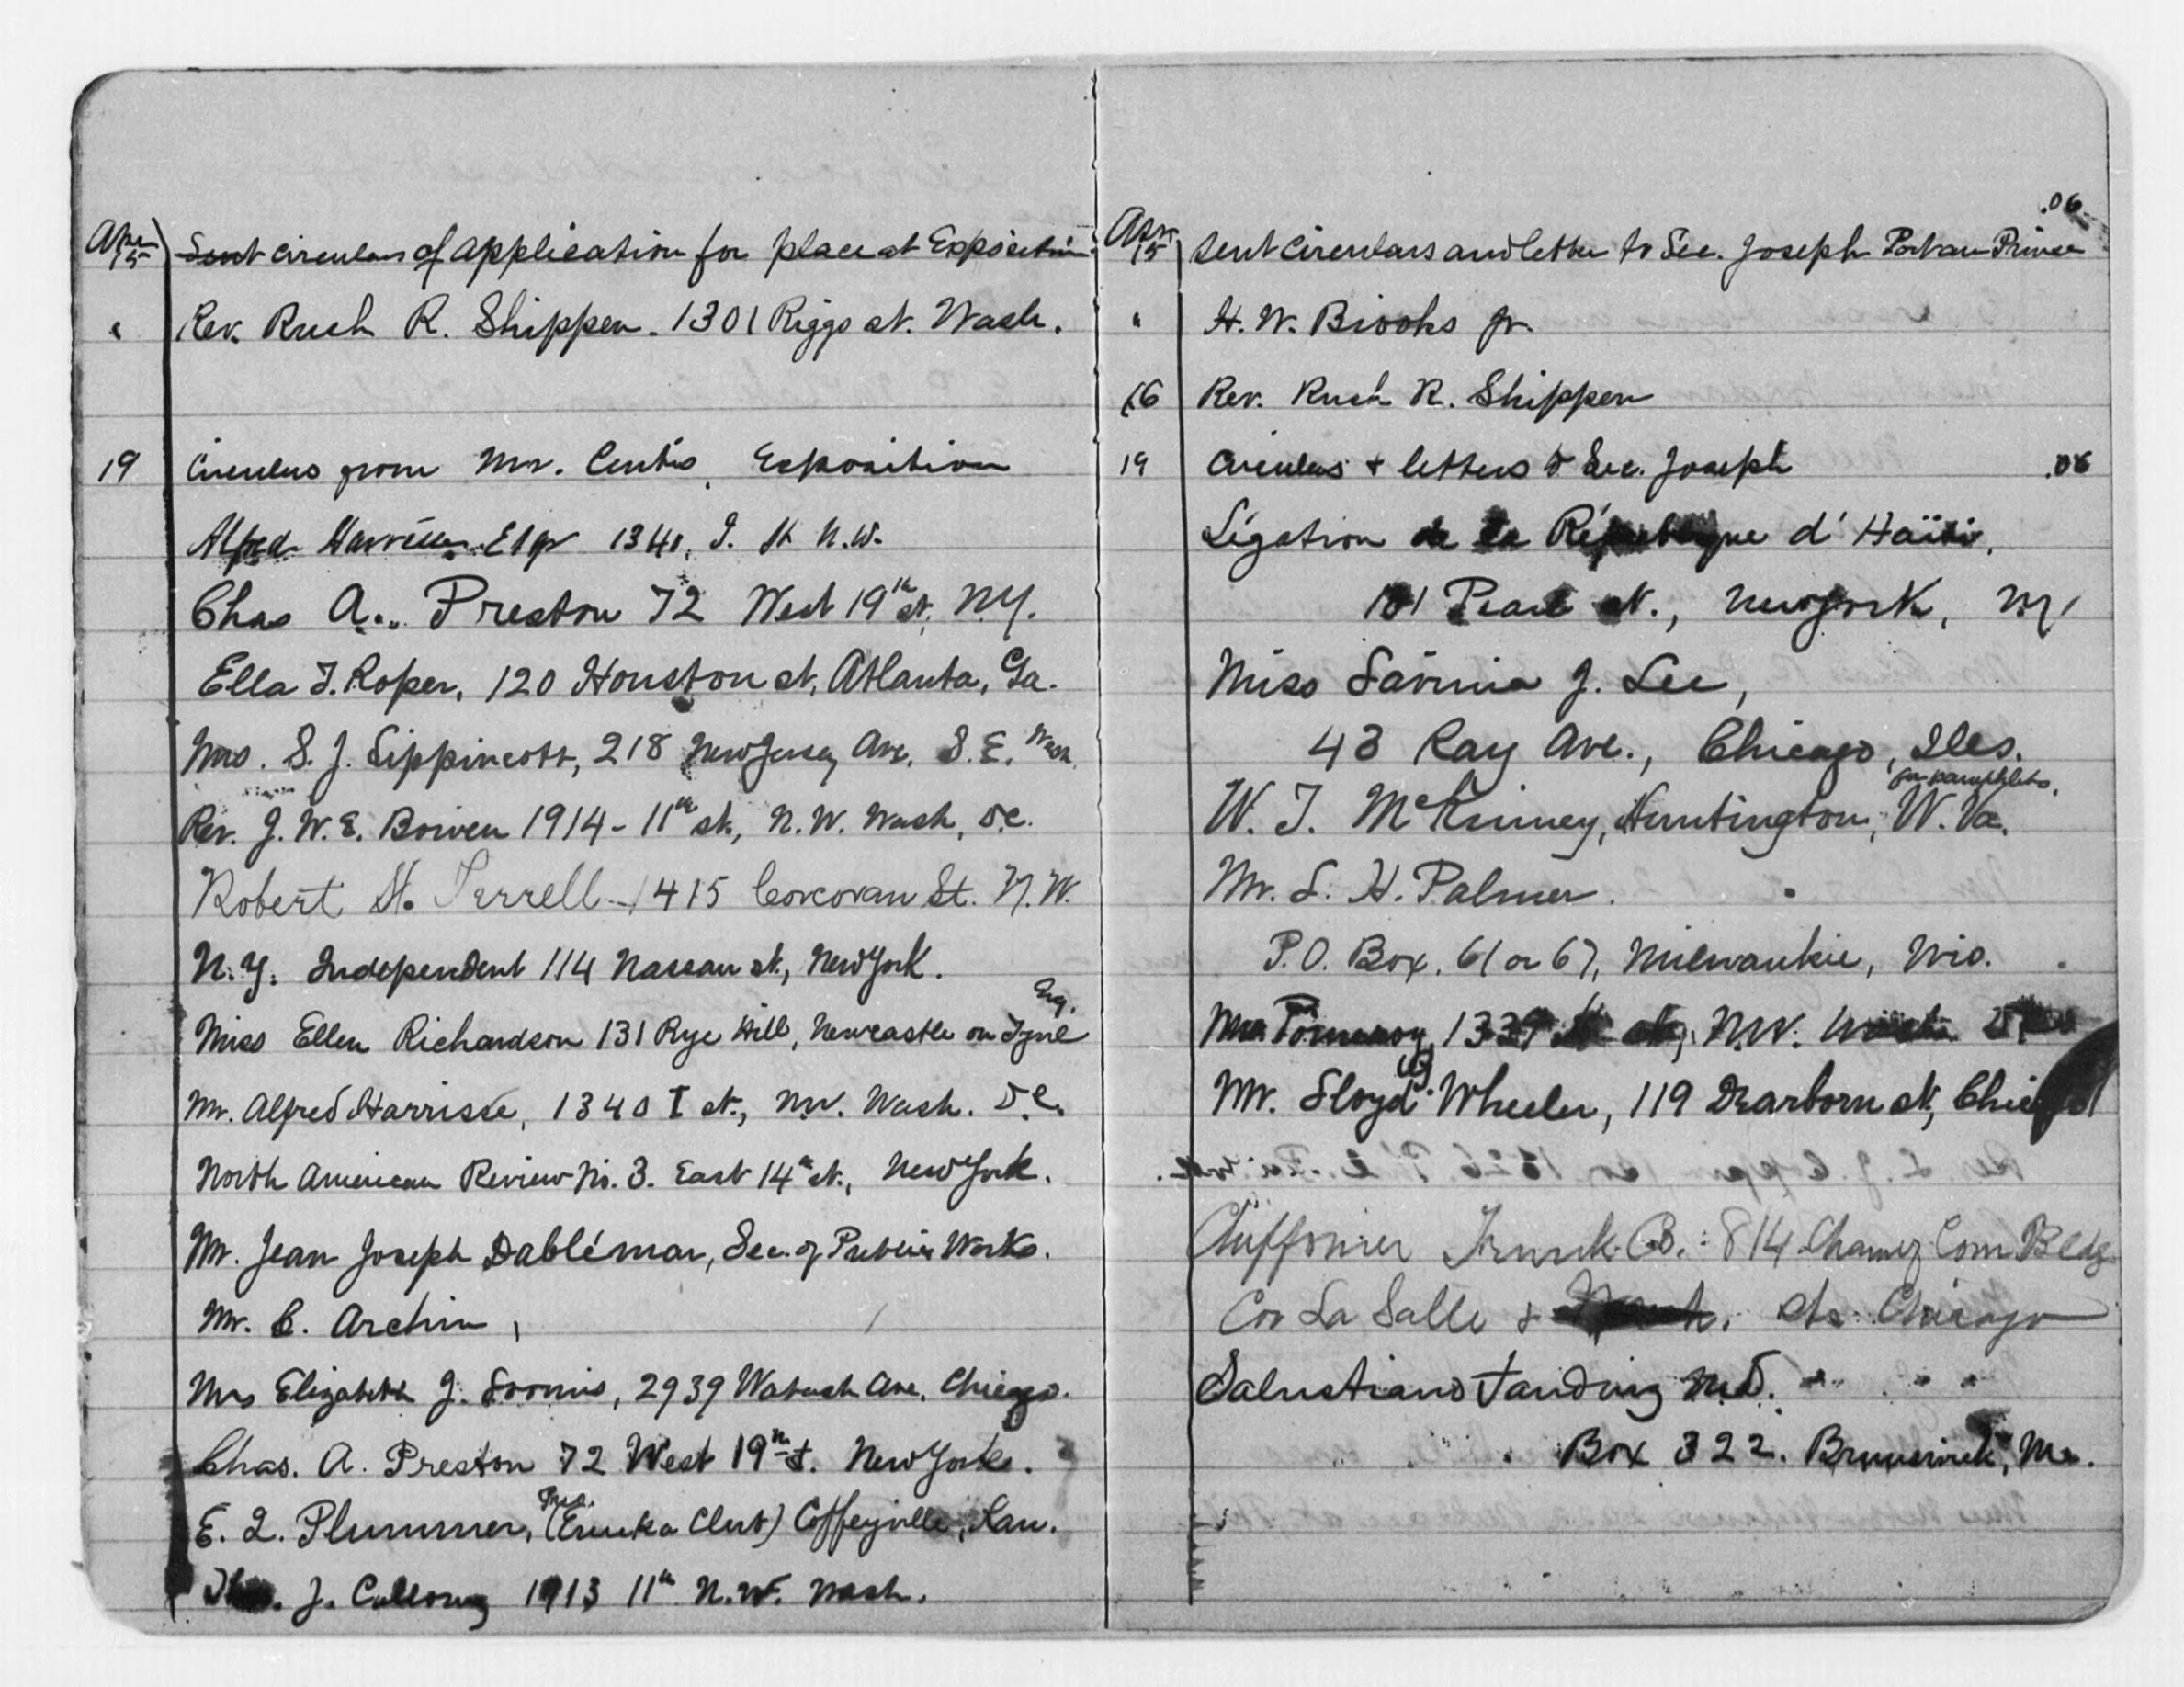 Apr 15 Sent circulars of application for place at Exposition
" Rev. Rush R. Shippen. 1301 Riggs st. Wash.
19 Circulars from Mr. Exposition
Alfred Esqr 1340, I. St N.W.
Chas A. Preston 72 West 19th st, N.Y.
Ella T. Roper, 120 Houston st, Atlanta, Ga.
Mrs. S. J. Lippincott, 218 New Jersey Ave. S.E. Wash.
Rev. J. W. E. Bowen 1914 - 11th st, N.W. Wash, D.C.
Robert H. Terrell - 1415 Corcoran St. N.W.
N.Y. Independent 114 Nassau st, New York.
Miss Ellen Richardson 131 Rye Hill, Newcastle on Tyne Eng.
Mr. Alfred Harrisse, 1340 I st., N.W. Wash. D.C.
North American Review No. 3. East 14th st., New York.
Mr. Jean Joseph Dablémar, Sec. of Public Works.
Mr. C. Archin,
Mrs Elizabeth J. Loomis, 2939 Wabash Ave. Chicago.
Chas. A. Preston 72 West 19th st. New York.
E. L. Plummer, Pres. (Eureka Club) Coffeyville, Kan.
J. Calloway 1913 11th N.W. Wash.
.06
Apr. 15 Sent circulars and letter to Sec. Joseph Port au Prince
" H. W. Brooks Jr.
16 Rev. Rush R. Shippen
19 Circulars + letters to Sec. Joseph .06
Légation de la République d'Haïti,
101 Pearl st., New York, NY
Miss Lavinia J. Lee,
43 Ray Ave., Chicago, Ills.
for pamphlets,
W. T. McKinney, Huntington, W. Va.
Mr. L. H. Palmer.
P.O. Box. 61 or 67, Milwaukie, Wis.
Mrs Pomeroy, N.W. Wash D.C.
Mr. Lloyd G Wheeler, 119 Dearborn st, Chicago
Chiffonier Trunk Co.: 814 Com Bldg
Cor La Salle + sts Chicago
Salustiano Fanduiz M.D.
Box 322. Brunswick, Me.